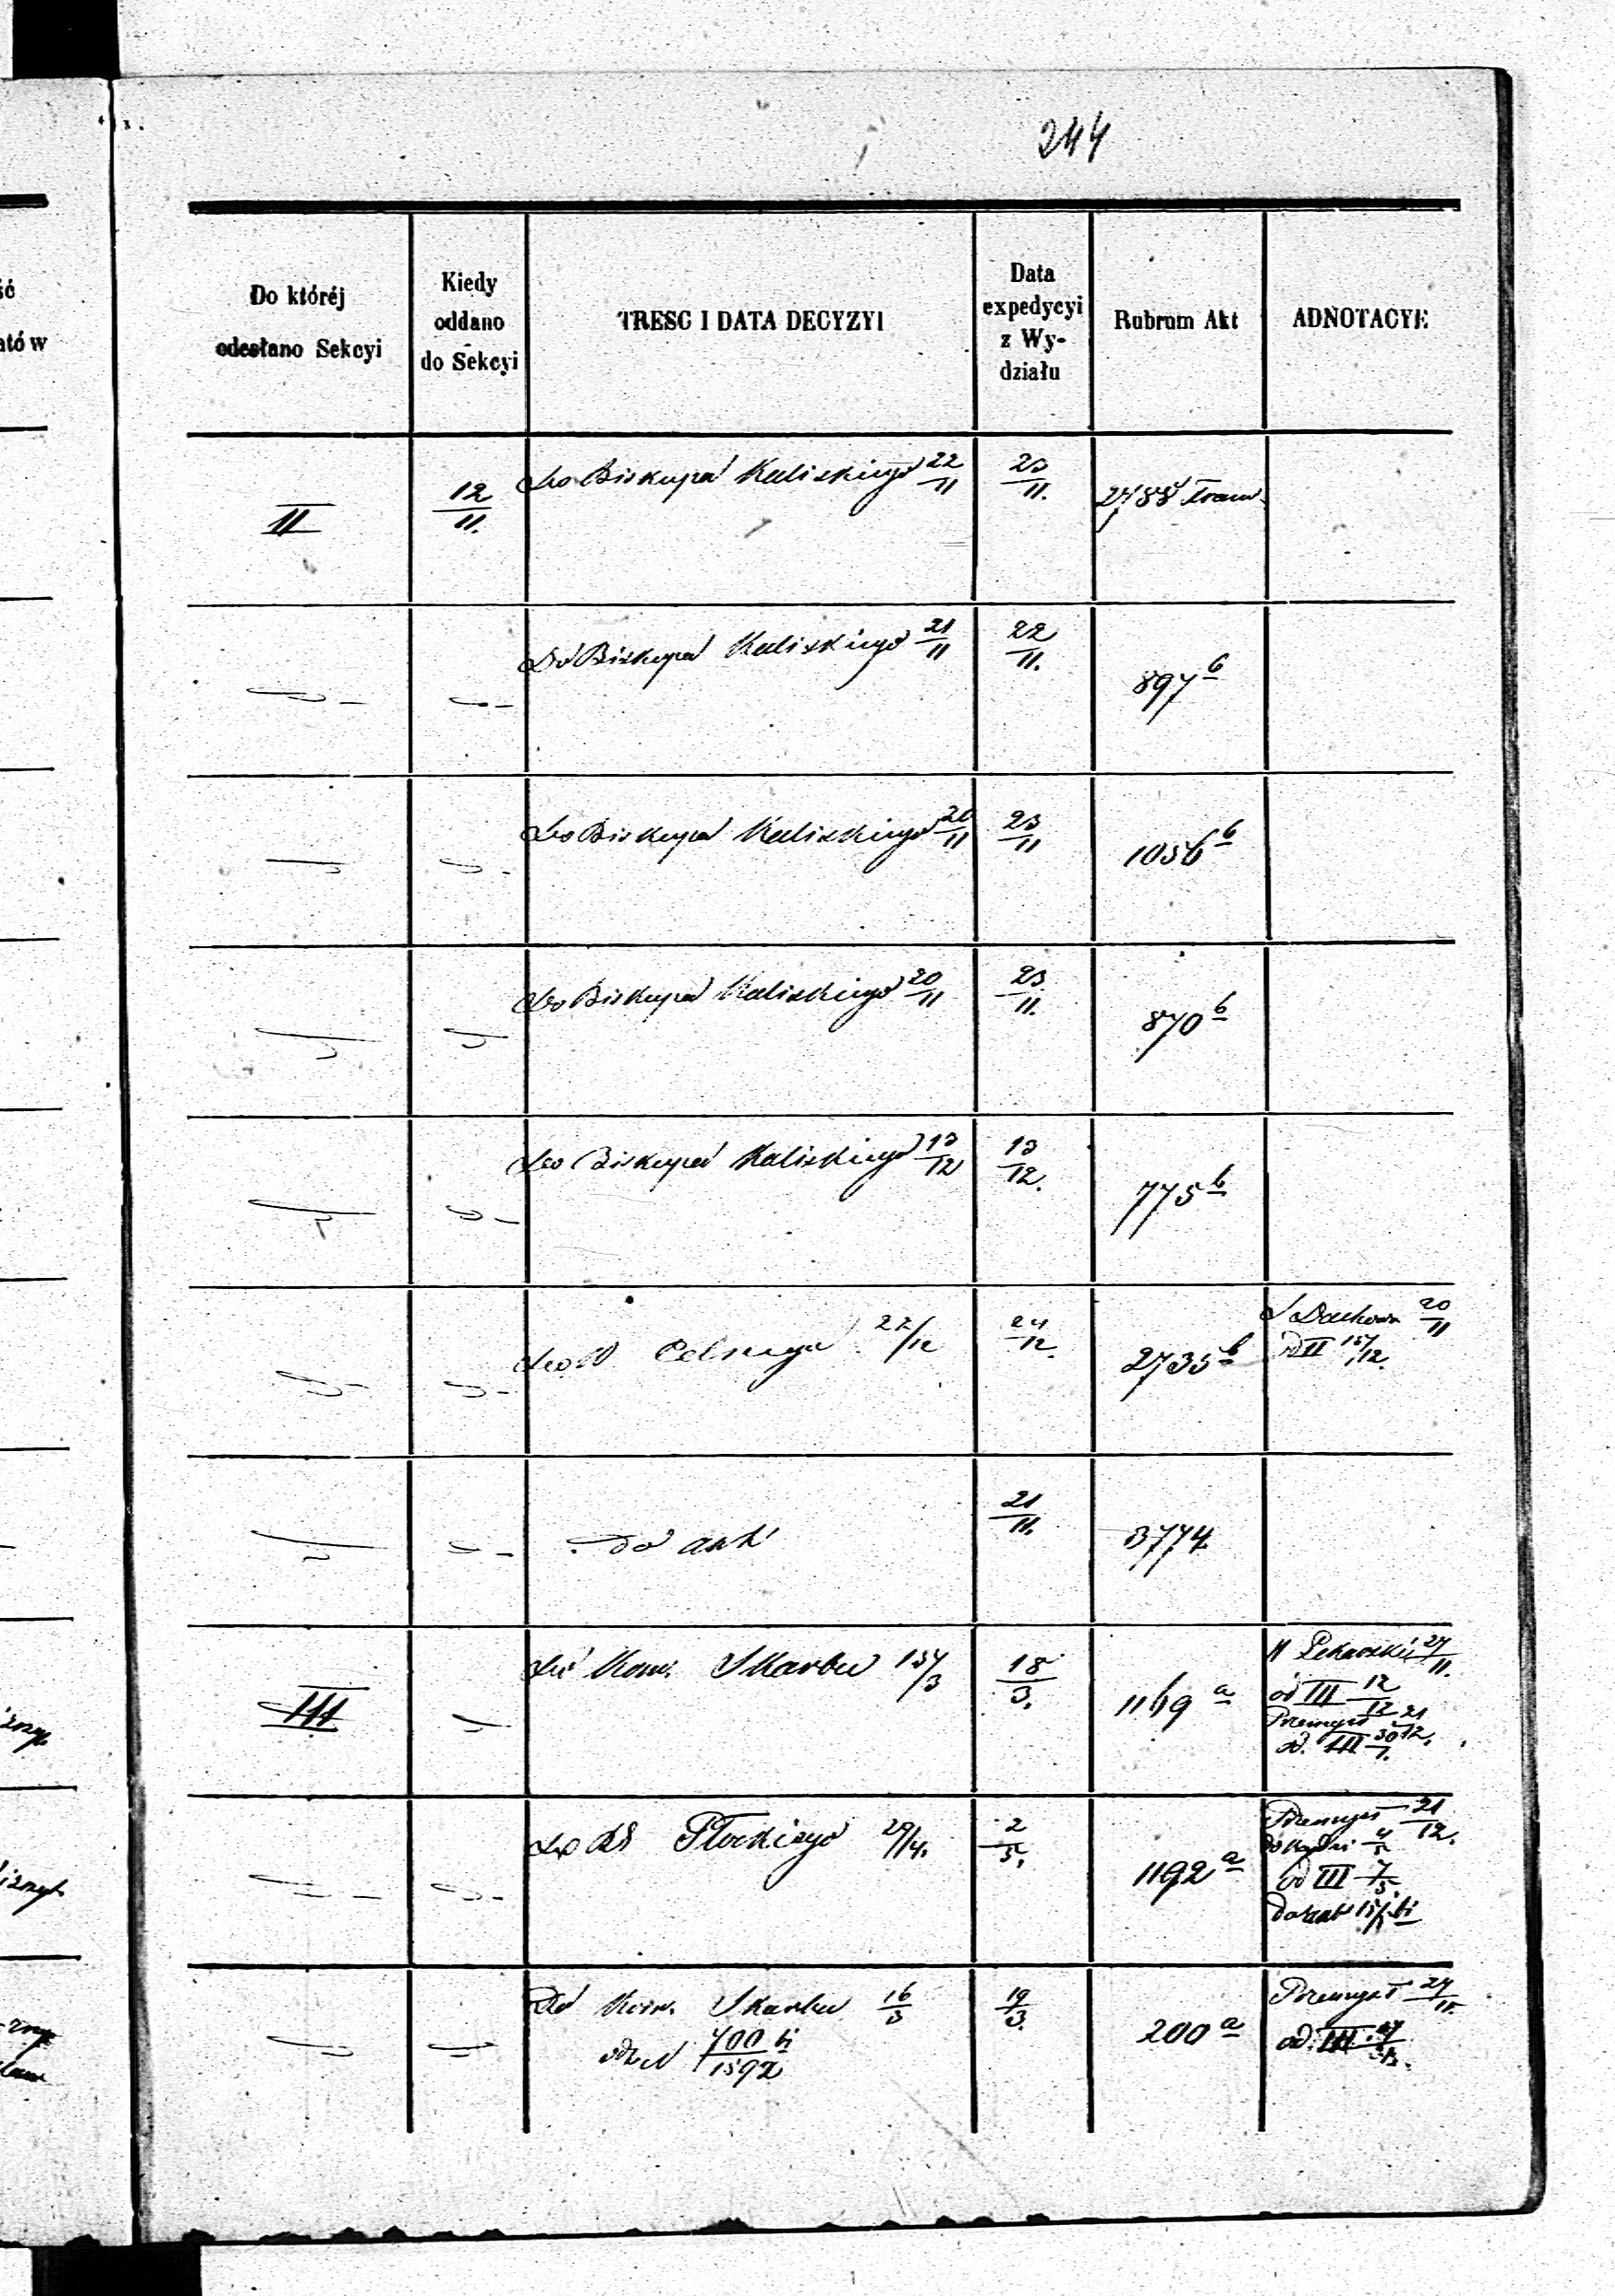 244
Do któréj
odesłano Sekcyi
Kiedy
oddano
do Sekcyi
TRESC I DATA DECYZYI
Data
expedycyi
z Wy-
działu
Rubrum Akt
ADNOTACYE
ść
atów
II
12/11.
Do Biskupa Kaliskiego 22/11
23/11.
2488
Do Biskupa Kaliskiego 21/11
22/11.
897 b
Do Biskupa Kaliskiego 20/11
23/11
1056 b
Do Biskupa Kaliskiego 20/11
23/11.
870 b
Do Biskupa Kaliskiego 13/12
13/12.
775 b
22/12
24/12.
2735 b
20/11
od II 15/12.
do akt
21/11.
3774
III
Do Kom. Skarbu 15/3
18/3.
1169 a
27/11.
od III 12/12
Przemysł 21/12.
od. III 30/1.
Do RG Płockiego 29/4.
2/5.
1192 a
Przemysł 21/12.
4/5
od III 7/5
Do Kom. Skarbu 16/3
odz N 700 b/1592
19/3.
200 a
Przemysł 27/11.
od. III